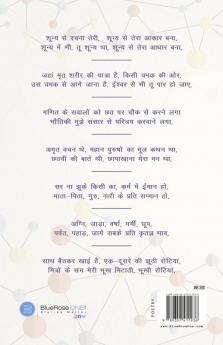 शून्य से रचना तेरी, शून्य से तेरा आकार बना,
शून्य में भी, तू शून्य था, शून्य से तेरा आधार बना,
जहां मृत शरीर की यात्रा हैं, किसी चमक की ओर,
उस चमक से आगे जाना हैं, ईश्वर से भी तू पार हो जाए,
गणित के सवालों को छत पर चौक से करने लगा
भौतिकी मुझे संसार से परिचय करवाने लगा,
अमृत वचन थे, महान पुरुषों का मूल कथन था,
छठवीं की बातें थी, छापाखाना मेरा मन था,
सर ना झुके किसी का, कर्म में ईमान हो,
माता-पिता, गुरु, नारी के प्रति सम्मान हो,
अग्नि, जाड़ा, वर्षा, गर्मी, धूप,
पर्वत, पहाड़, जागे सबके प्रति कृतज्ञ भाव,
साथ बैठकर खाई हैं, एक-दूसरे की झूठी रोटियां,
मित्रों के संग मेरी भूख मिटाती, सूखी रोटियां,
BlueRose ONE
Stories Matter
POETRY
www.bluerose